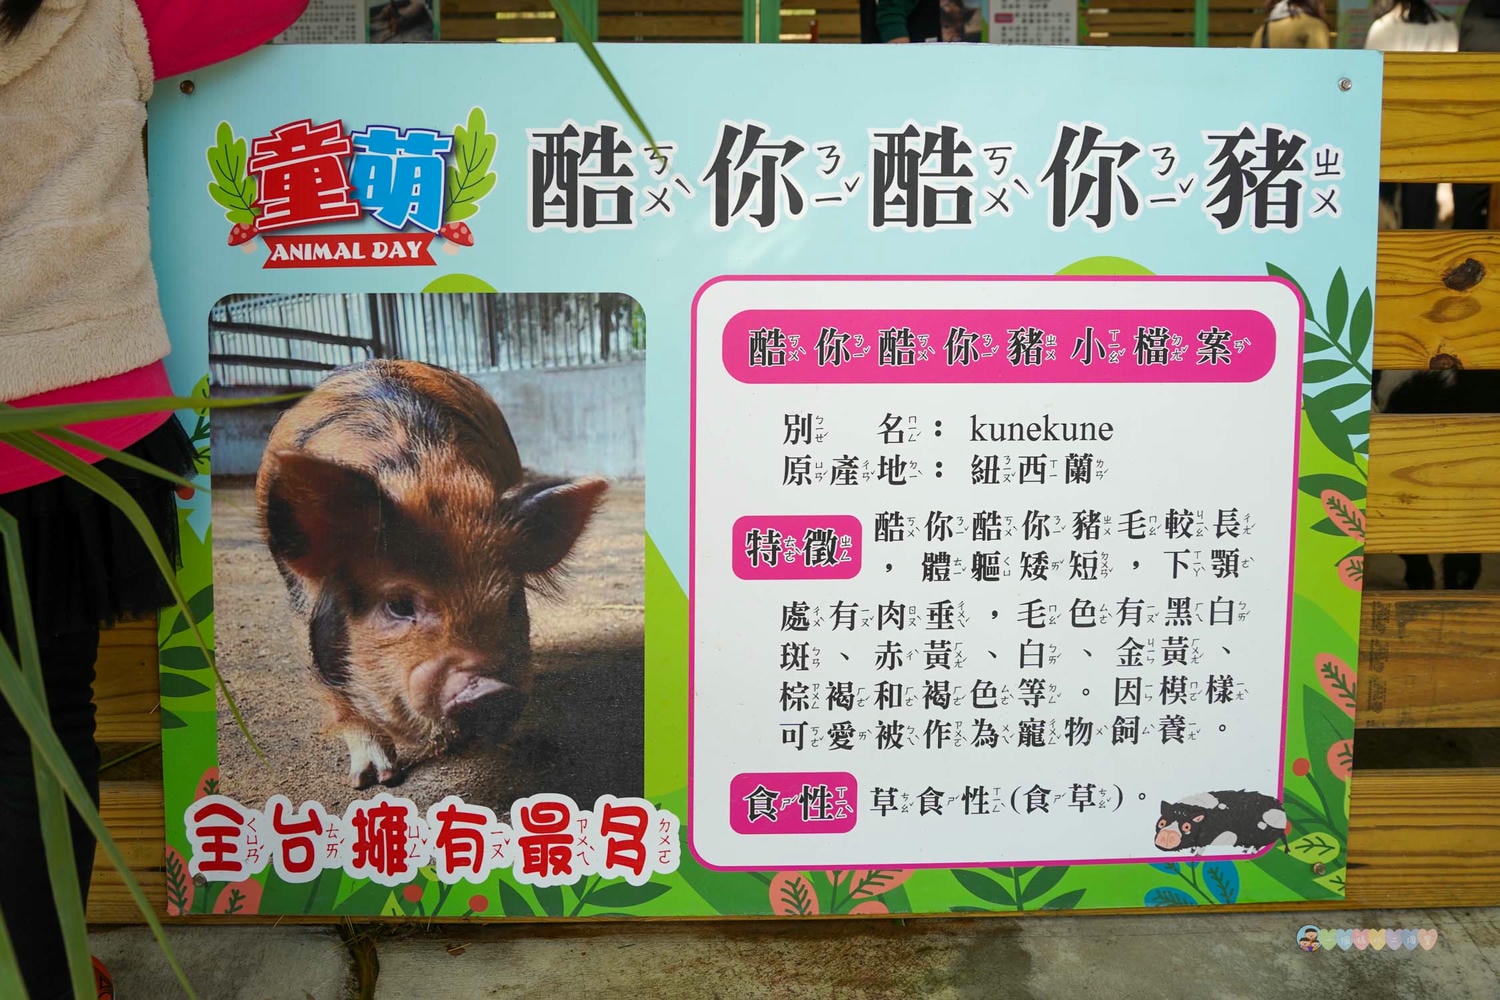 童萌
ANIMAL DAY
酷你酷你豬
酷你酷你豬小檔案
別名：kunekune
原產地：紐西蘭
特徵
酷你酷你豬毛較長
，體軀矮短，下顎
處有肉垂，毛色有黑白
斑、赤黃、白、金黃、
棕褐和褐色等。因模樣
可愛被作為寵物飼養。
食性
草食性(食草)。
全台擁有最多